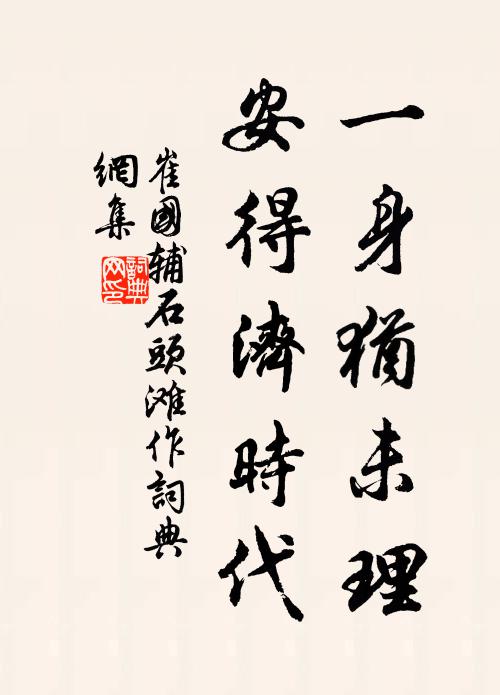 一身猶未理
安得濟時代
崔國輔石頭滩作詞典
網集
詞典
网印